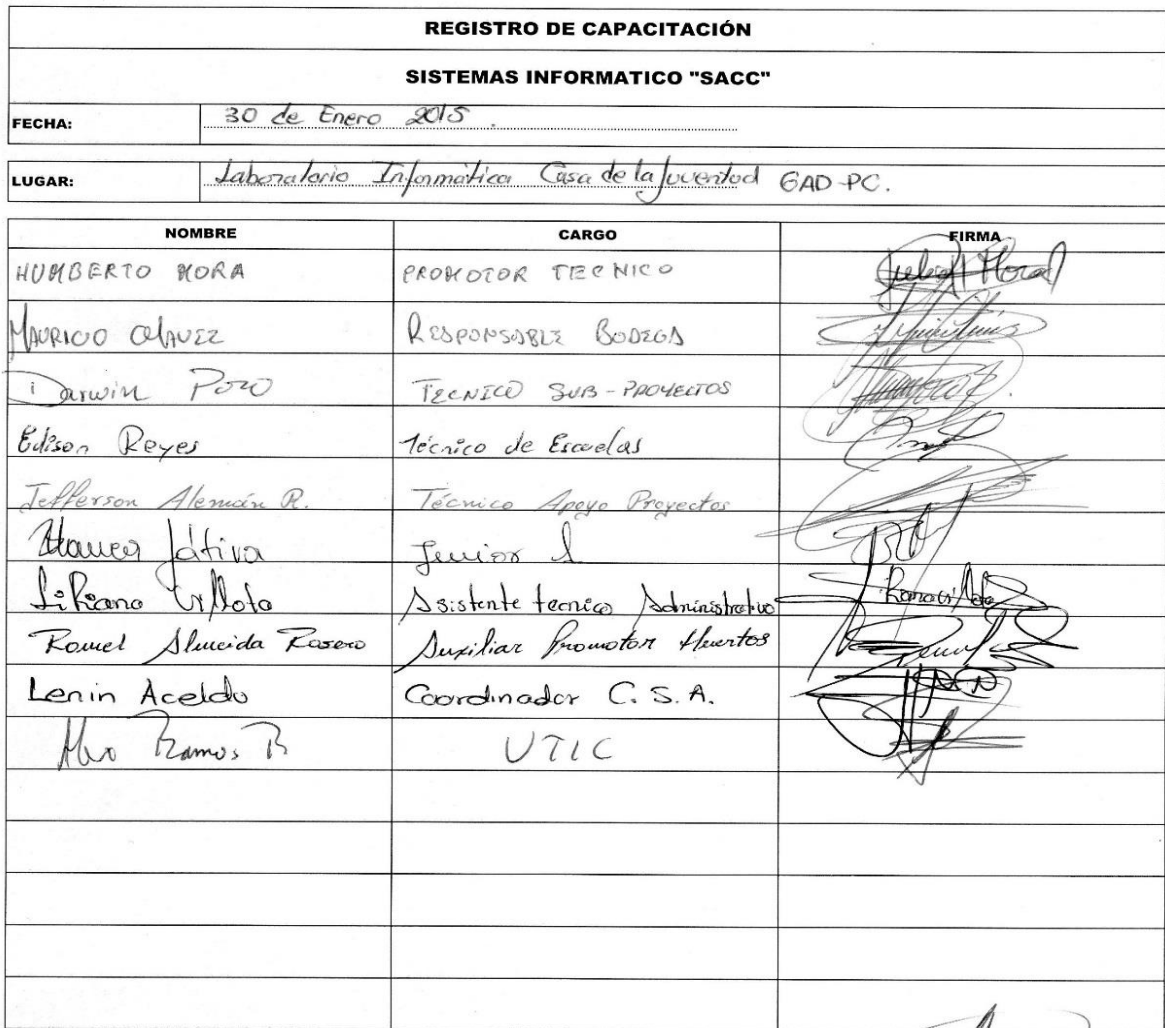 REGISTRO DE CAPACITACIÓN
SISTEMAS INFORMATICO "SACC"
FECHA: 30 de Enero 2015
LUGAR: Laboratorio Informática Casa de la juventud GAD-PC.
NOMBRE CARGO FIRMA
HUMBERTO MORA PROMOTOR TECNICO
MAURICIO CHAVEZ RESPONSABLE BODEGA
Darwin Pozo TECNICO SUB-PROYECTOS
Edison Reyes Técnico de Escuelas
Jefferson Alemán R. Técnico Apoyo Proyectos
Játiva Junior 1
Liliana Asistente tecnico Administrativo
Romel Almeida Rosero Auxiliar Promotor Huertos
Lenin Aceldo Coordinador C.S.A.
Ramos B UTIC